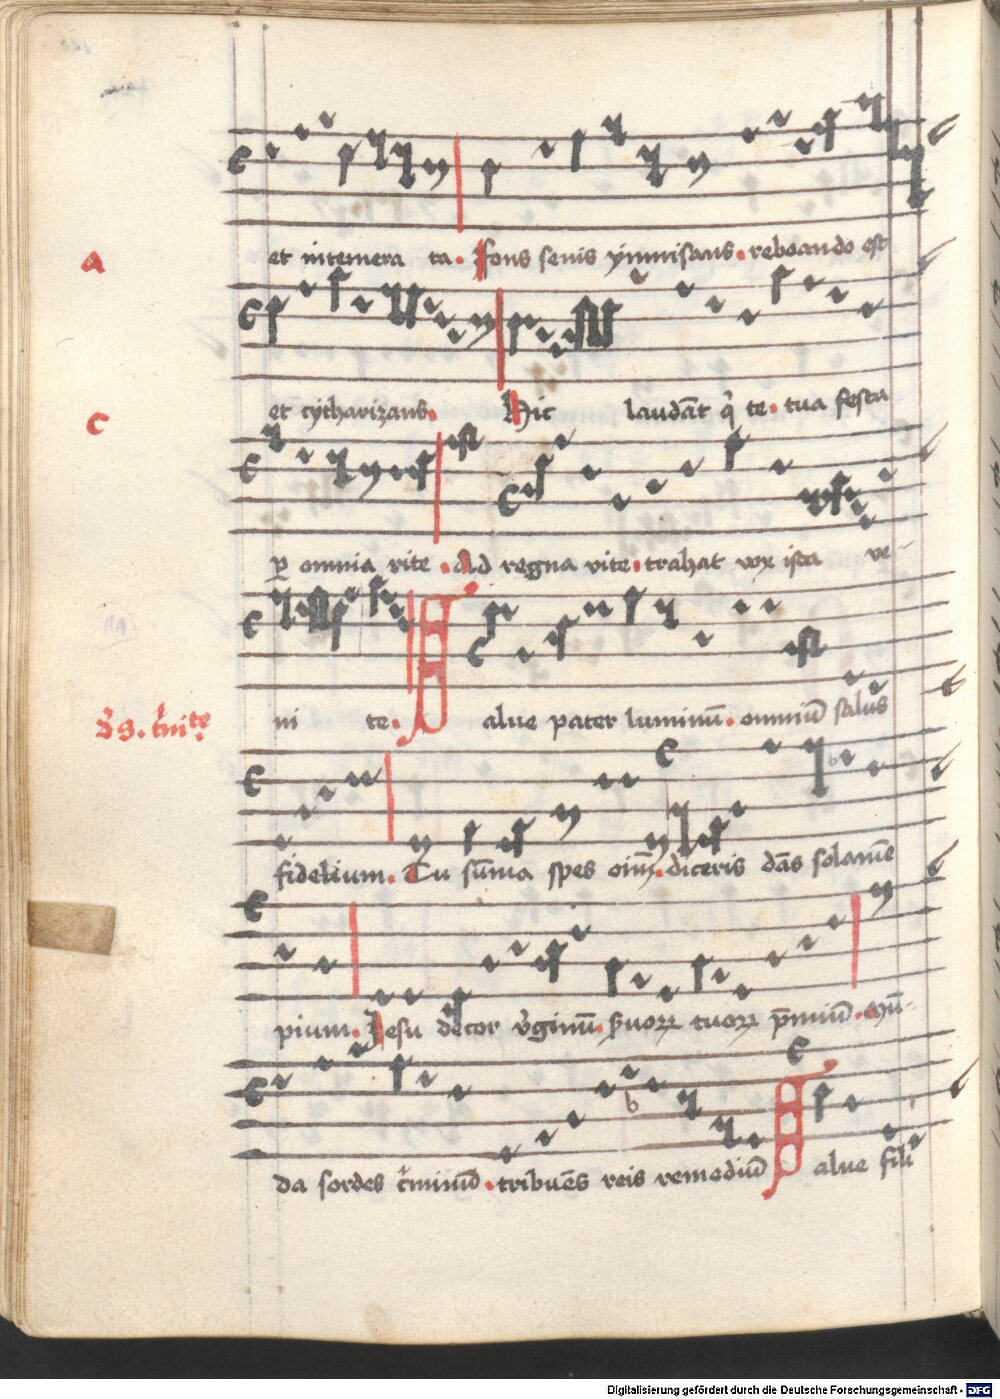 et intemera ta. Fons senis ÿmnisans. reboando est
A
et cÿtharizans. Hic laudāt q̄ te. tua festa
C
ꝑ omnia rite. Ad regna vite. trahat vox ista ve-
ni te. Salve pater luminū. omniū salus
fidelium. Tu sūma spes oīm. diceris dās solamē
pium. Jesu decor v̄ginū. ẜuorꝝ tuorꝝ p̄miū. Mū-
da sordes c̓minū. tribuēs reis remediū Salve fili
Digitalisierung gefördert durch die Deutsche Forschungsgemeinschaft - DFG